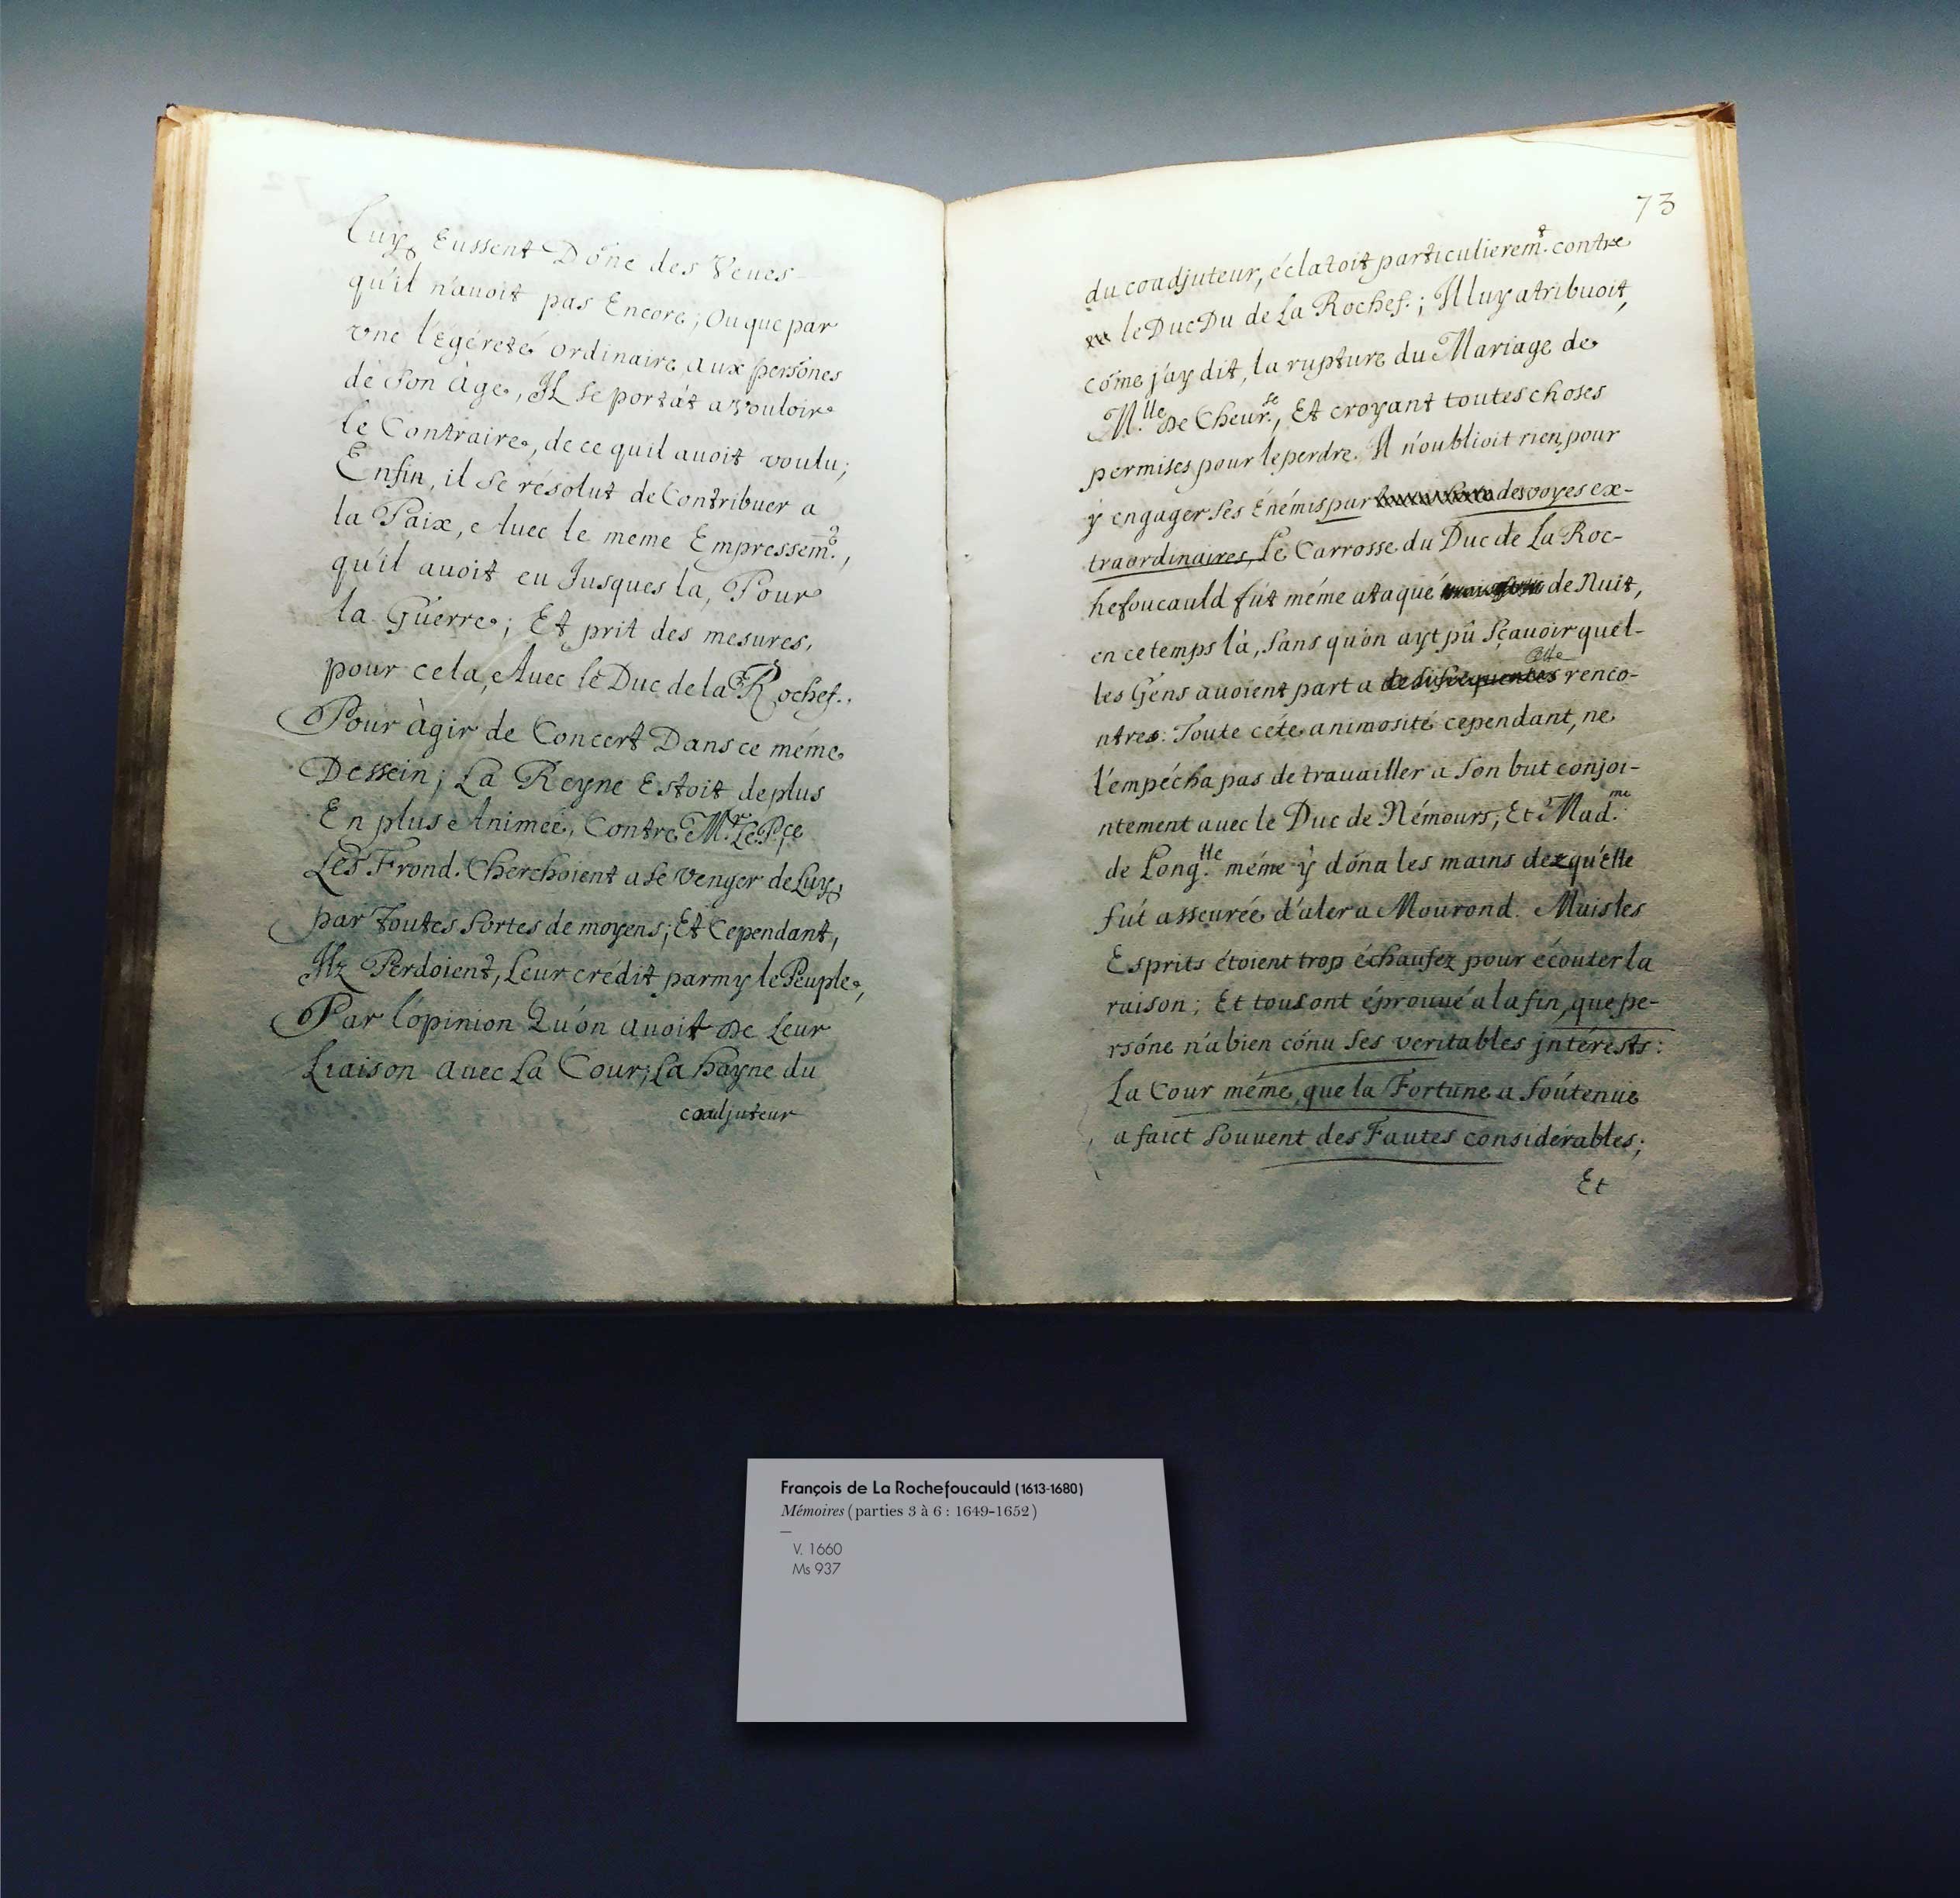 Luy, Eussent Dônc des Veues
qu'il n'auoit pas Encore; Ou que par
vne légéreté ordinaire aux persónes
de son âge, Il se portát a vouloir
le Contraire, de ce quil auoit voulu;
Enfin, il se résolut de Contribuer a
la Paix, Auec le meme Empressemt.,
qu'il auoit eu Jusques la, Pour
la Guerre; Et prit des mesures,
pour cela, Auec le Duc de la Rochef.,
Pour àgir de Concert Dans ce méme
Dessein; La Reyne Estoit de plus
En plus Animée, Contre Mr. Le Pce
Les Frond. Cherchoient a se venger de Luy,
par toutes sortes de moyens; Et Cependant,
Ilz Perdoient, Leur crédit parmy le Peuple,
Par l'opinion Qu'on auoit De Leur
Liaison auec La Cour; La hayne du
coadjuteur
73
du coadjuteur, éclatoit particulieremt. contre
le Duc Du de La Rochef.; Il luy atribuoit,
cóme j'ay dit, la rupture du Mariage de
Mlle. De Cheurse., Et croyant toutes choses
permises pour le perdre. Il n'oublioit rien, pour
ÿ engager ses Énémis par des voyes ex-
traordinaires, Le Carrosse du Duc de La Roc-
hefoucauld fút méme ataqué de Nuit,
en ce temps là, sans qu'on ayt pû Sçauoir quel-
les Gens auoient part a cette renco-
ntre: Toute céte animosité cependant, ne
l'empécha pas de trauailler a son but conjoi-
ntement auec le Duc de Némours; Et Madme.
de Longlle. méme ÿ dóna les mains dez qu'elle
fút asseurée d'aler a Mourond. Mais les
Esprits étoient trop échaufez pour écouter la
raison; Et tous ont éprouué a la fin, que pe-
rsóne n'a bien cónu ses veritables jntérests:
La Cour méme, que la Fortune a soútenüe
a faict souuent des Fautes considérables;
Et
François de La Rochefoucauld (1613-1680)
Mémoires (parties 3 à 6 : 1649-1652)
—
V. 1660
Ms 937